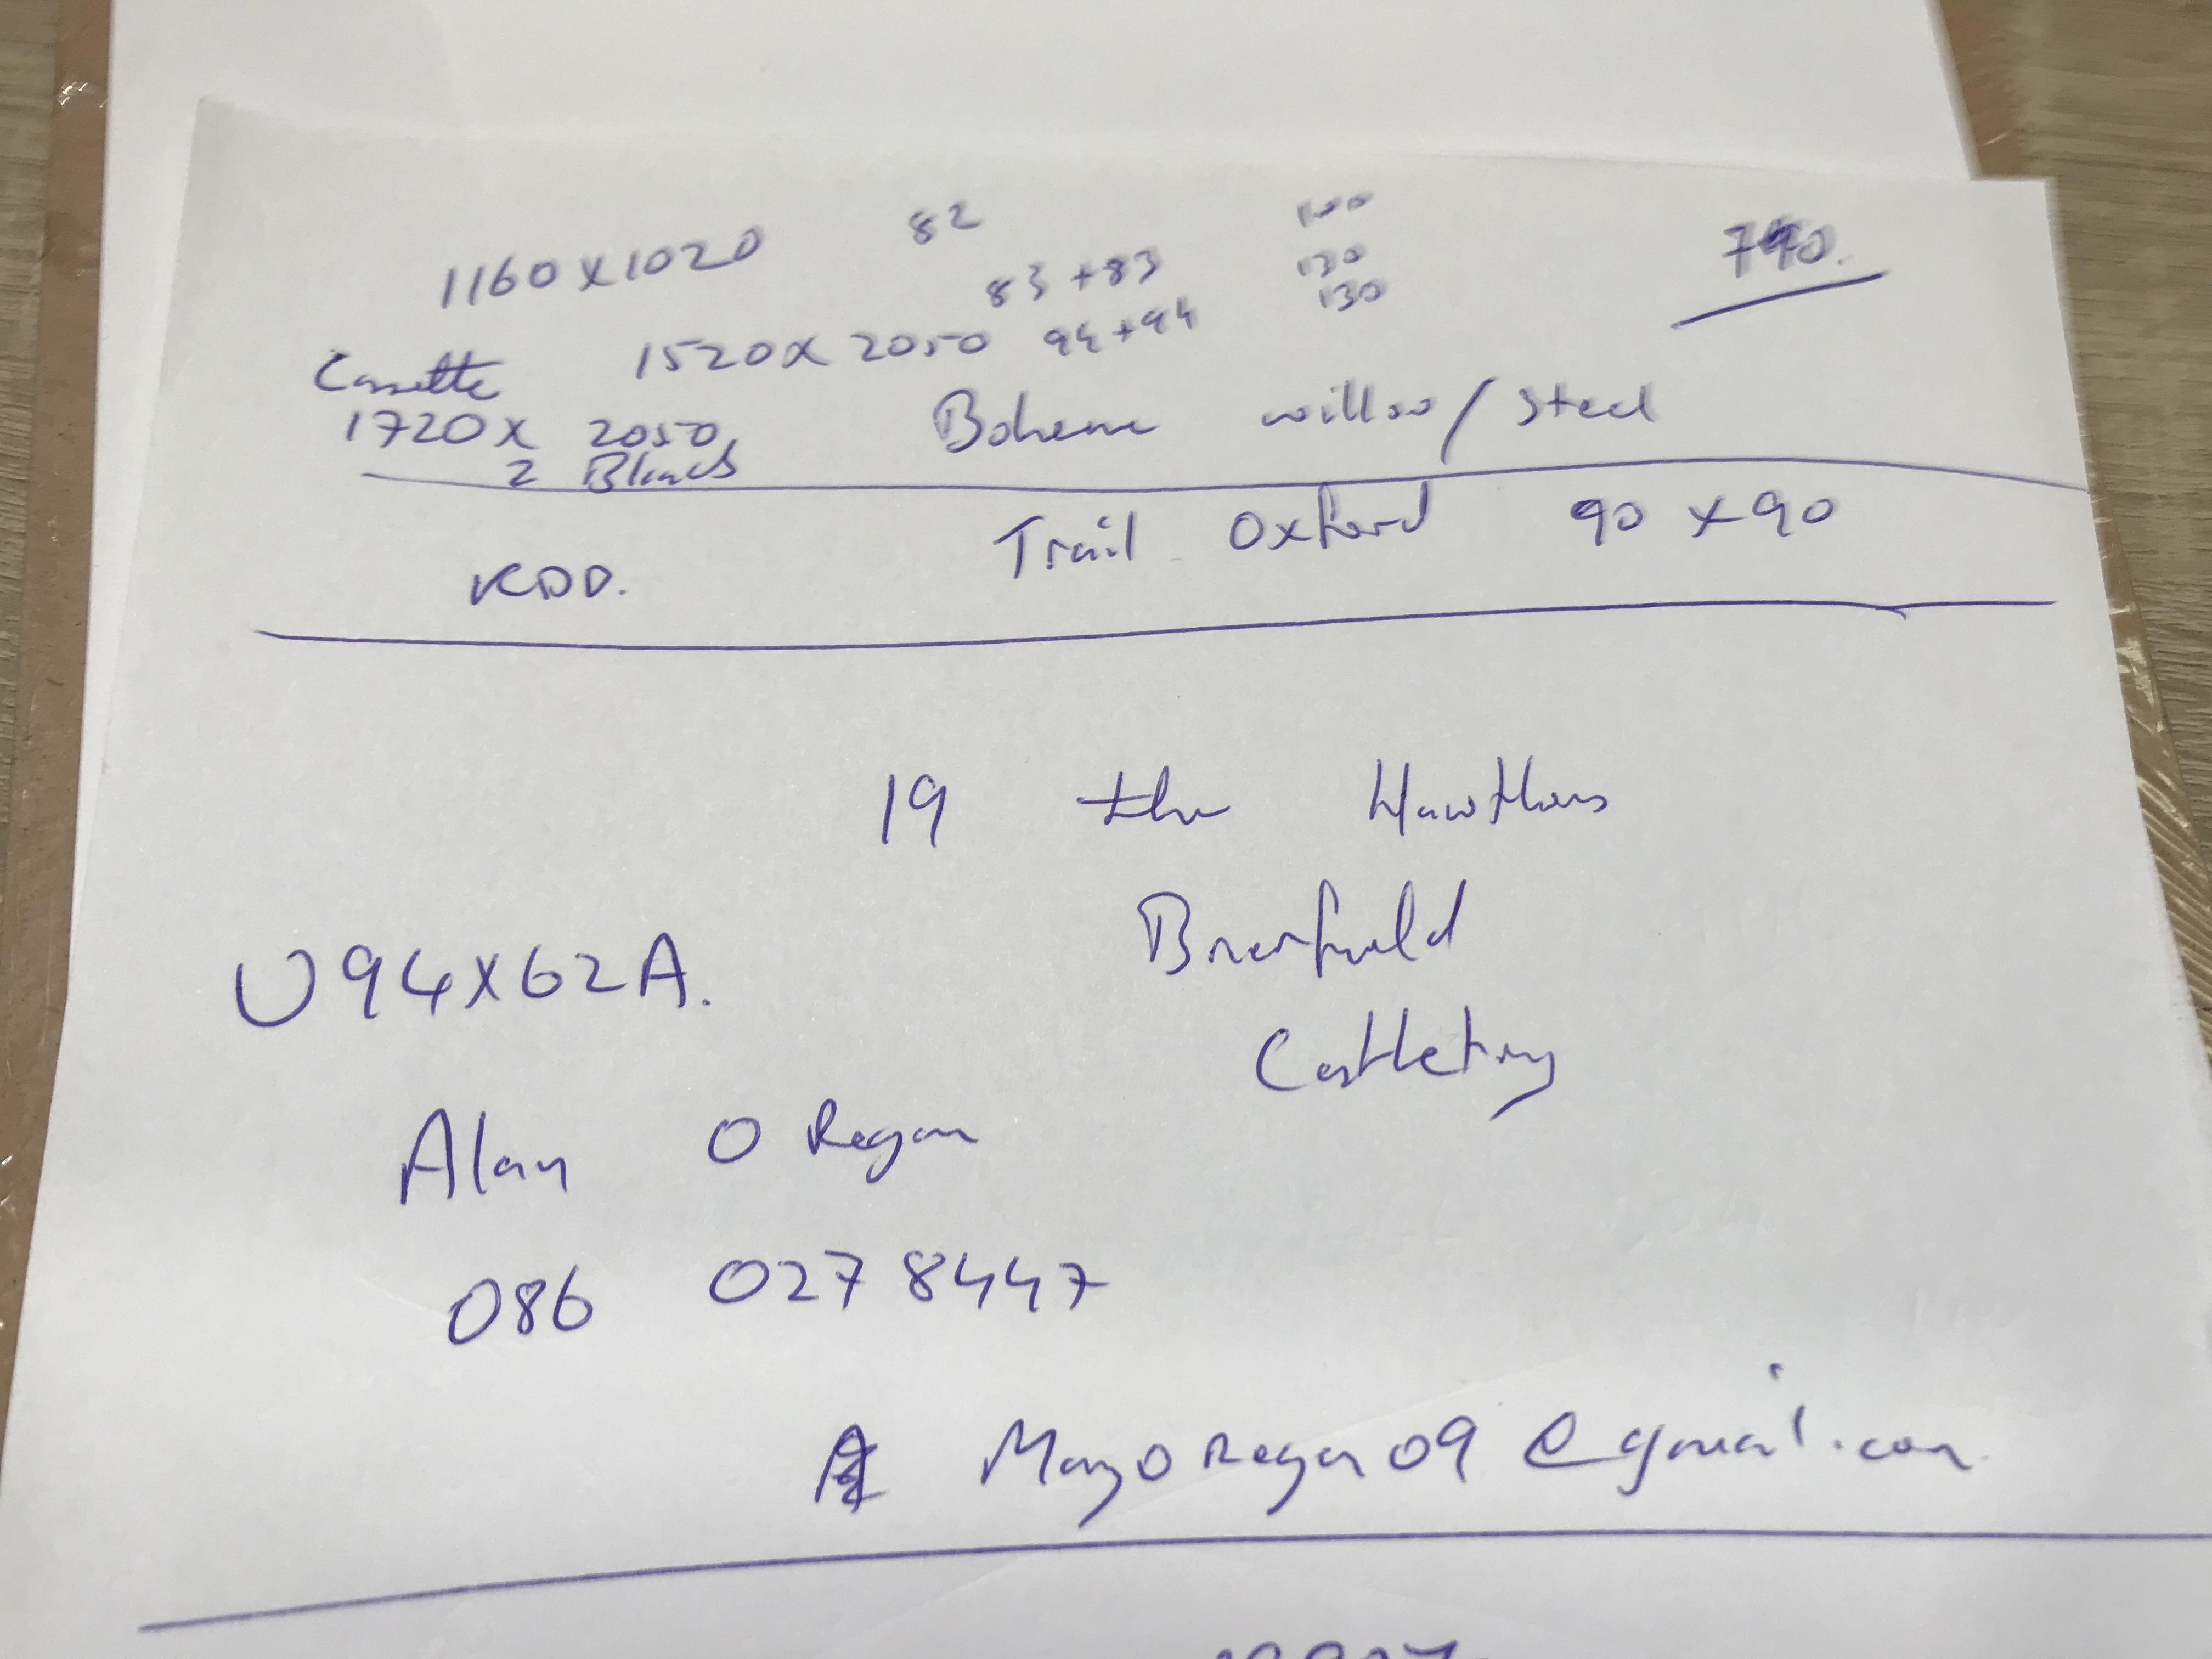 1160 x 1020 82 100
83 + 83 130
Cassette 1520 x 2050 94 + 94 130
790.
1720 x 2050 Boheme willow / steel
2 Blinds
Trail Oxford 90 x 90
KDD.
19 the Hawthorns
Brierfield
U94X62A.
Castletroy
Alan O Regan
086 027 8447
MaryORegan09@gmail.com